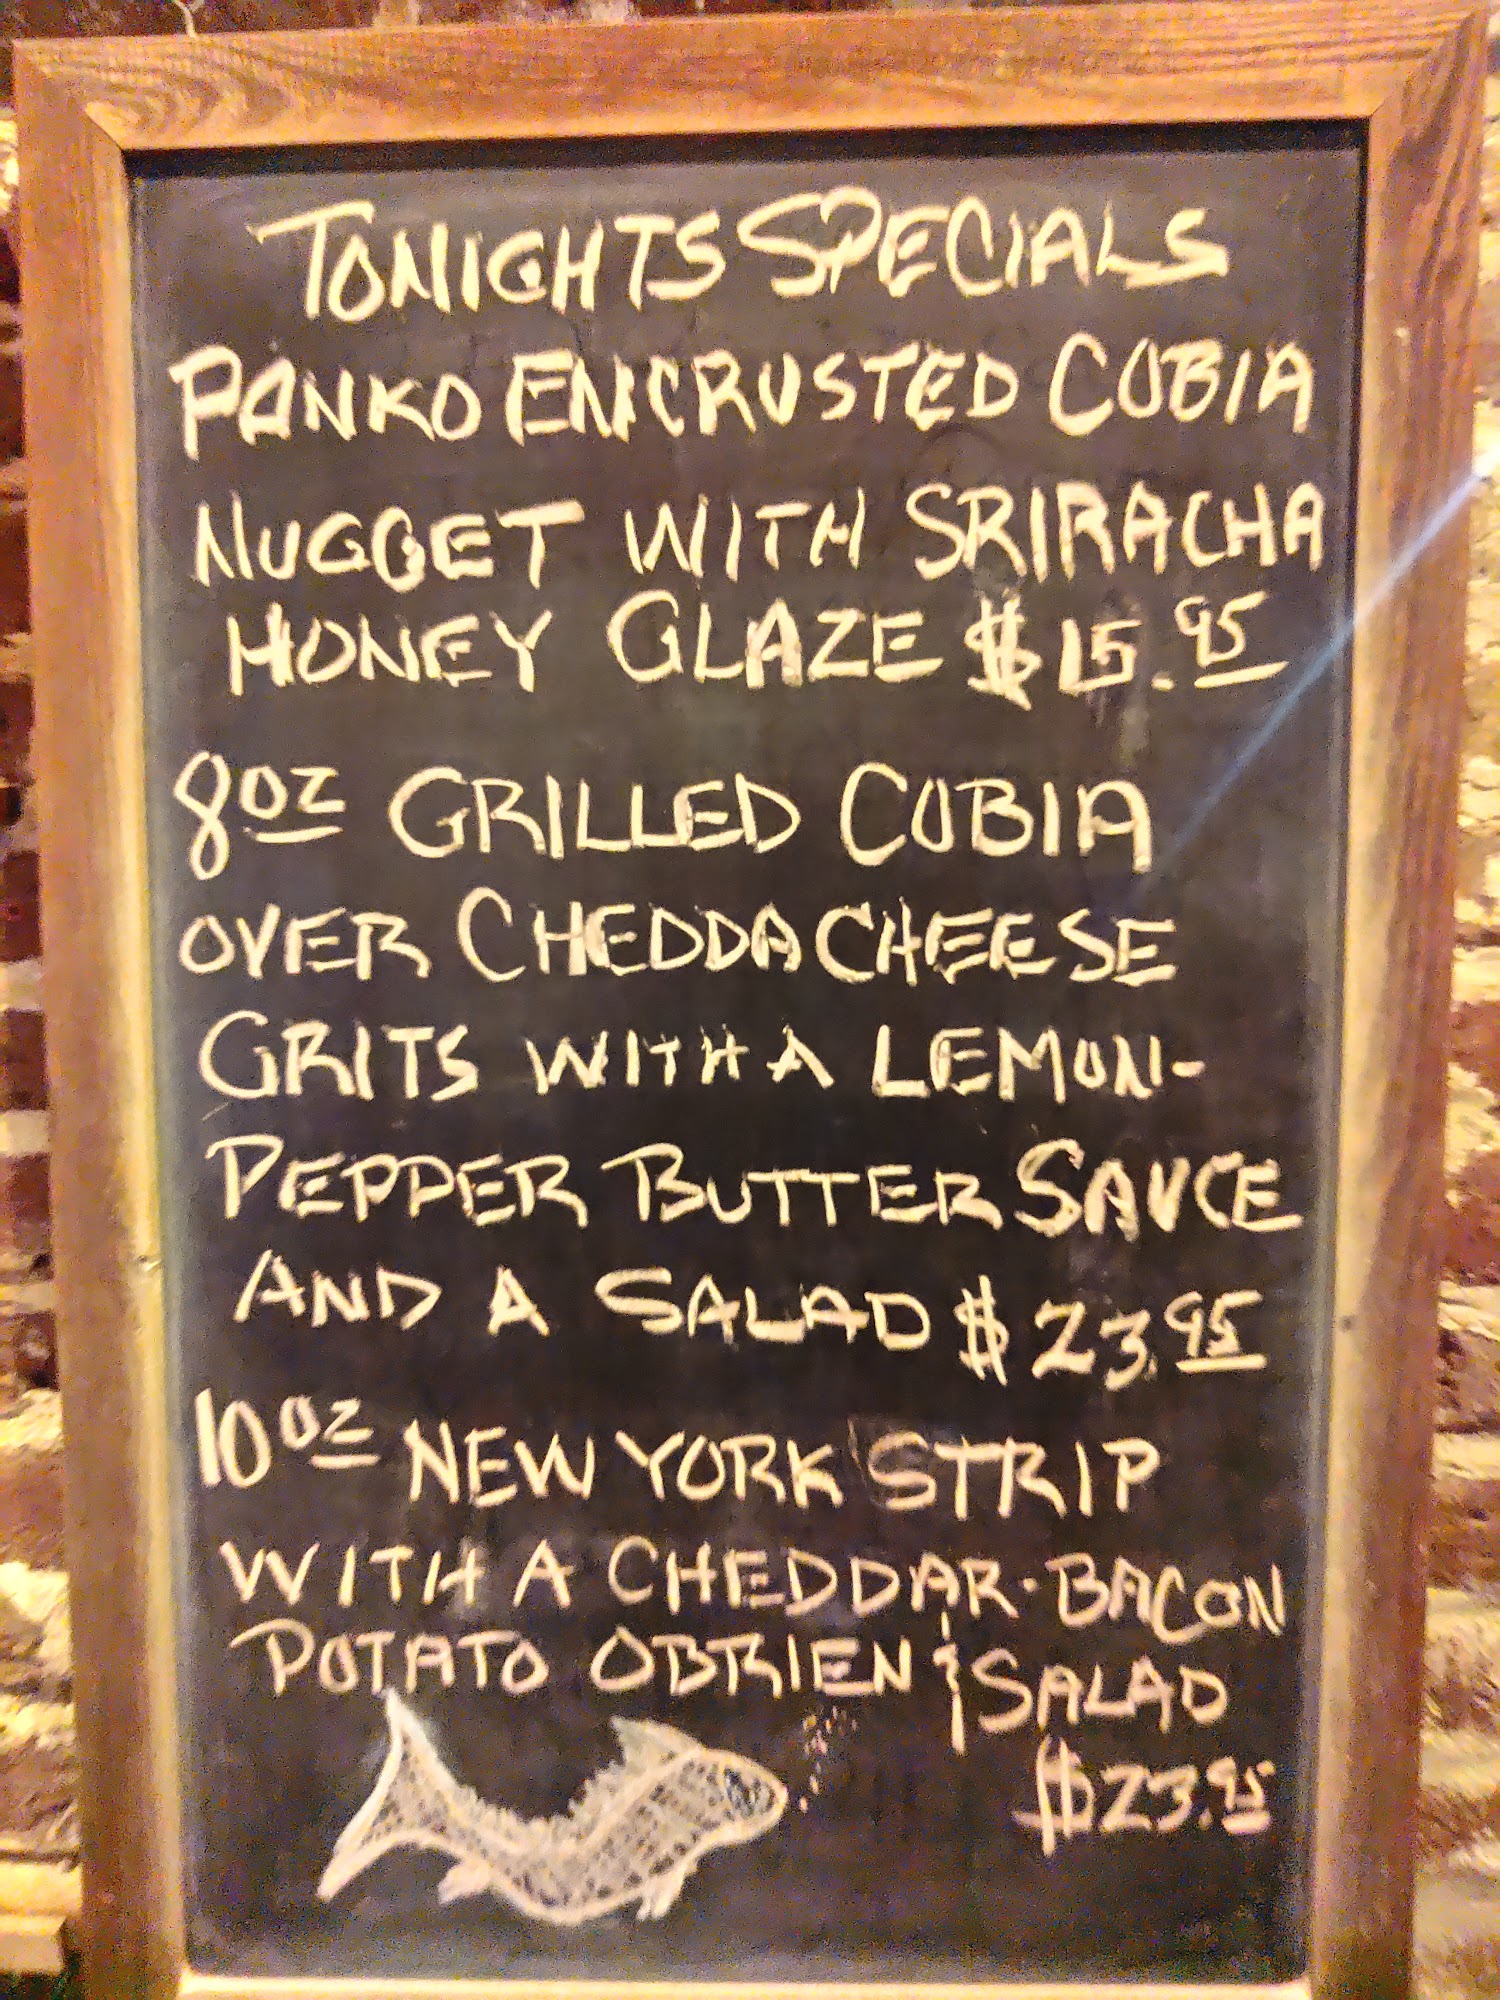 TONIGHTS SPECIALS
PANKO ENCRUSTED COBIA
NUGGET WITH SRIRACHA
HONEY GLAZE $15.95
8oz GRILLED COBIA
OVER CHEDDA CHEESE
GRITS WITH A LEMON-
PEPPER BUTTER SAUCE
AND A SALAD $23.95
10oz NEW YORK STRIP
WITH A CHEDDAR-BACON
POTATO OBRIEN & SALAD
$23.95